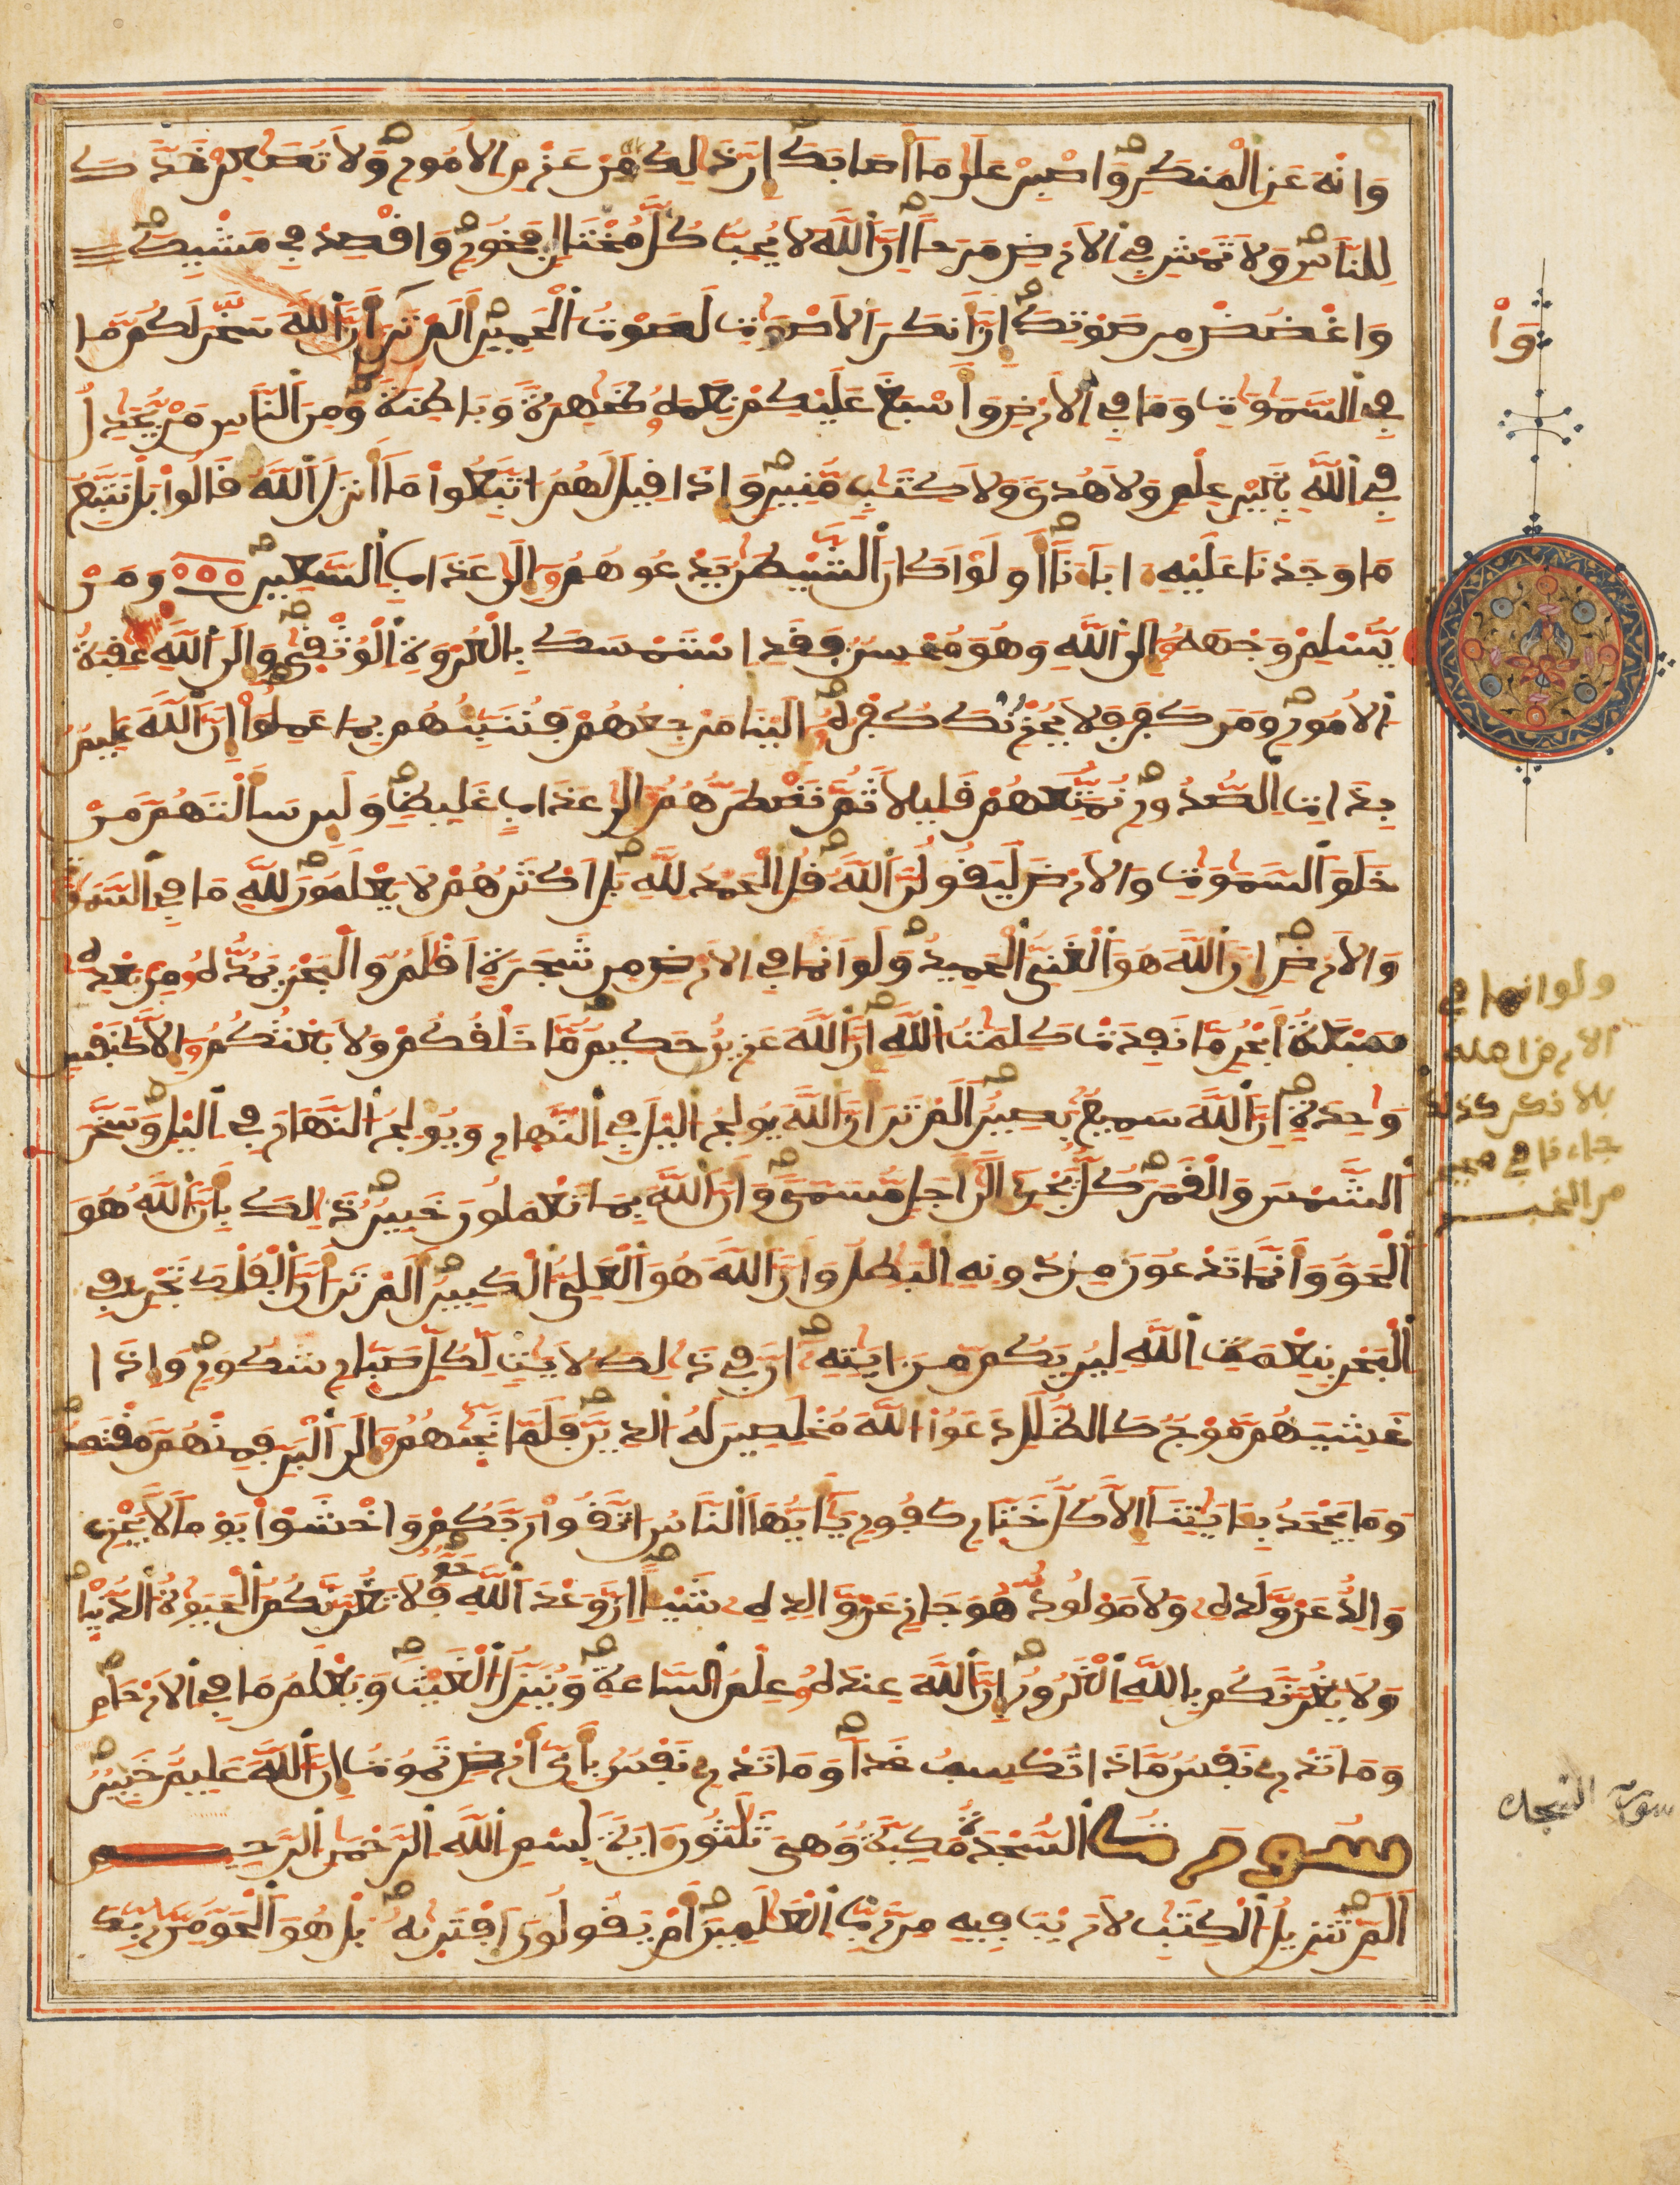 وَانْهَ عَنِ الْمُنكَرِ وَاصْبِرْ عَلَىٰ مَا أَصَابَكَ إِنَّ ذَٰلِكَ مِنْ عَزْمِ الْأُمُورِ وَلَا تُصَٰعِرْ خَدَّكَ
لِلنَّاسِ وَلَا تَمْشِ فِي الْأَرْضِ مَرَحًا إِنَّ اللَّهَ لَا يُحِبُّ كُلَّ مُخْتَالٍ فَخُورٍ وَاقْصِدْ فِي مَشْيِكَ
وَاغْضُضْ مِن صَوْتِكَ إِنَّ أَنكَرَ الْأَصْوَٰتِ لَصَوْتُ الْحَمِيرِ أَلَمْ تَرَ أَنَّ اللَّهَ سَخَّرَ لَكُم مَّا
فِي السَّمَٰوَٰتِ وَمَا فِي الْأَرْضِ وَأَسْبَغَ عَلَيْكُمْ نِعَمَهُ ظَٰهِرَةً وَبَاطِنَةً وَمِنَ النَّاسِ مَنْ يُجَٰدِلُ
فِي اللَّهِ بِغَيْرِ عِلْمٍ وَلَا هُدًى وَلَا كِتَٰبٍ مُّنِيرٍ وَإِذَا قِيلَ لَهُمُ اتَّبِعُوا مَا أَنزَلَ اللَّهُ قَالُوا بَلْ نَتَّبِعُ
مَا وَجَدْنَا عَلَيْهِ ءَابَاءَنَا أَوَلَوْ كَانَ الشَّيْطَٰنُ يَدْعُوهُمُ إِلَىٰ عَذَابِ السَّعِيرِ وَمَنْ
يُسْلِمْ وَجْهَهُ إِلَى اللَّهِ وَهُوَ مُحْسِنٌ فَقَدِ اسْتَمْسَكَ بِالْعُرْوَةِ الْوُثْقَىٰ وَإِلَى اللَّهِ عَٰقِبَةُ
الْأُمُورِ وَمَن كَفَرَ فَلَا يُحْزِنكَ كُفْرُهُ إِلَيْنَا مَرْجِعُهُمْ فَنُنَبِّئُهُم بِمَا عَمِلُوا إِنَّ اللَّهَ عَلِيمٌ
بِذَاتِ الصُّدُورِ نُمَتِّعُهُمْ قَلِيلًا ثُمَّ نَضْطَرُّهُمُ إِلَىٰ عَذَابٍ غَلِيظٍ وَلَئِن سَأَلْتَهُم مَّنْ
خَلَقَ السَّمَٰوَٰتِ وَالْأَرْضَ لَيَقُولُنَّ اللَّهُ قُلِ الْحَمْدُ لِلَّهِ بَلْ أَكْثَرُهُمْ لَا يَعْلَمُونَ لِلَّهِ مَا فِي السَّمَٰوَٰتِ
وَالْأَرْضِ إِنَّ اللَّهَ هُوَ الْغَنِيُّ الْحَمِيدُ وَلَوْ أَنَّمَا فِي الْأَرْضِ مِن شَجَرَةٍ أَقْلَٰمٌ وَالْبَحْرُ يَمُدُّهُ مِن بَعْدِهِ
سَبْعَةُ أَبْحُرٍ مَّا نَفِدَتْ كَلِمَٰتُ اللَّهِ إِنَّ اللَّهَ عَزِيزٌ حَكِيمٌ مَّا خَلْقُكُمْ وَلَا بَعْثُكُمُ إِلَّا كَنَفْسٍ
وَٰحِدَةٍ إِنَّ اللَّهَ سَمِيعٌ بَصِيرٌ أَلَمْ تَرَ أَنَّ اللَّهَ يُولِجُ الَّيْلَ فِي النَّهَارِ وَيُولِجُ النَّهَارَ فِي الَّيْلِ وَسَخَّرَ
الشَّمْسَ وَالْقَمَرَ كُلٌّ يَجْرِي إِلَىٰ أَجَلٍ مُّسَمًّى وَأَنَّ اللَّهَ بِمَا تَعْمَلُونَ خَبِيرٌ ذَٰلِكَ بِأَنَّ اللَّهَ هُوَ
الْحَقُّ وَأَنَّمَا تَدْعُونَ مِن دُونِهِ الْبَٰطِلُ وَأَنَّ اللَّهَ هُوَ الْعَلِيُّ الْكَبِيرُ أَلَمْ تَرَ أَنَّ الْفُلْكَ تَجْرِي فِي
الْبَحْرِ بِنِعْمَتِ اللَّهِ لِيُرِيَكُم مِّنَ ءَايَٰتِهِ إِنَّ فِي ذَٰلِكَ لَأَيَٰتٍ لِّكُلِّ صَبَّارٍ شَكُورٍ وَإِذَا
غَشِيَهُم مَّوْجٌ كَالظُّلَلِ دَعَوُا اللَّهَ مُخْلِصِينَ لَهُ الدِّينَ فَلَمَّا نَجَّىٰهُمُ إِلَى الْبَرِّ فَمِنْهُم مُّقْتَصِدٌ
وَمَا يَجْحَدُ بِـَٔايَٰتِنَا إِلَّا كُلُّ خَتَّارٍ كَفُورٍ يَٰأَيُّهَا النَّاسُ اتَّقُوا رَبَّكُمْ وَاخْشَوْا يَوْمًا لَّا يَجْزِي
وَالِدٌ عَن وَّلَدِهِ وَلَا مَوْلُودٌ هُوَ جَازٍ عَن وَّالِدِهِ شَيْـًٔا إِنَّ وَعْدَ اللَّهِ حَقٌّ فَلَا تَغُرَّنَّكُمُ الْحَيَوٰةُ الدُّنْيَا
وَلَا يَغُرَّنَّكُم بِاللَّهِ الْغَرُورُ إِنَّ اللَّهَ عِندَهُ عِلْمُ السَّاعَةِ وَيُنَزِّلُ الْغَيْثَ وَيَعْلَمُ مَا فِي الْأَرْحَامِ
وَمَا تَدْرِي نَفْسٌ مَّاذَا تَكْسِبُ غَدًا وَمَا تَدْرِي نَفْسٌ بِأَيِّ أَرْضٍ تَمُوتُ إِنَّ اللَّهَ عَلِيمٌ خَبِيرٌ
سُورَةُ السَّجْدَةِ مَكِّيَّةٌ وَهِيَ ثَلَٰثُونَ ءَايَةً بِسْمِ اللَّهِ الرَّحْمَٰنِ الرَّحِيمِ
الٓمٓ تَنزِيلُ الْكِتَٰبِ لَا رَيْبَ فِيهِ مِن رَّبِّ الْعَٰلَمِينَ أَمْ يَقُولُونَ افْتَرَىٰهُ بَلْ هُوَ الْحَقُّ مِن رَّبِّكَ
وَاْ
ولو انما في
الارض
بلا ذكر
سورة السجدة